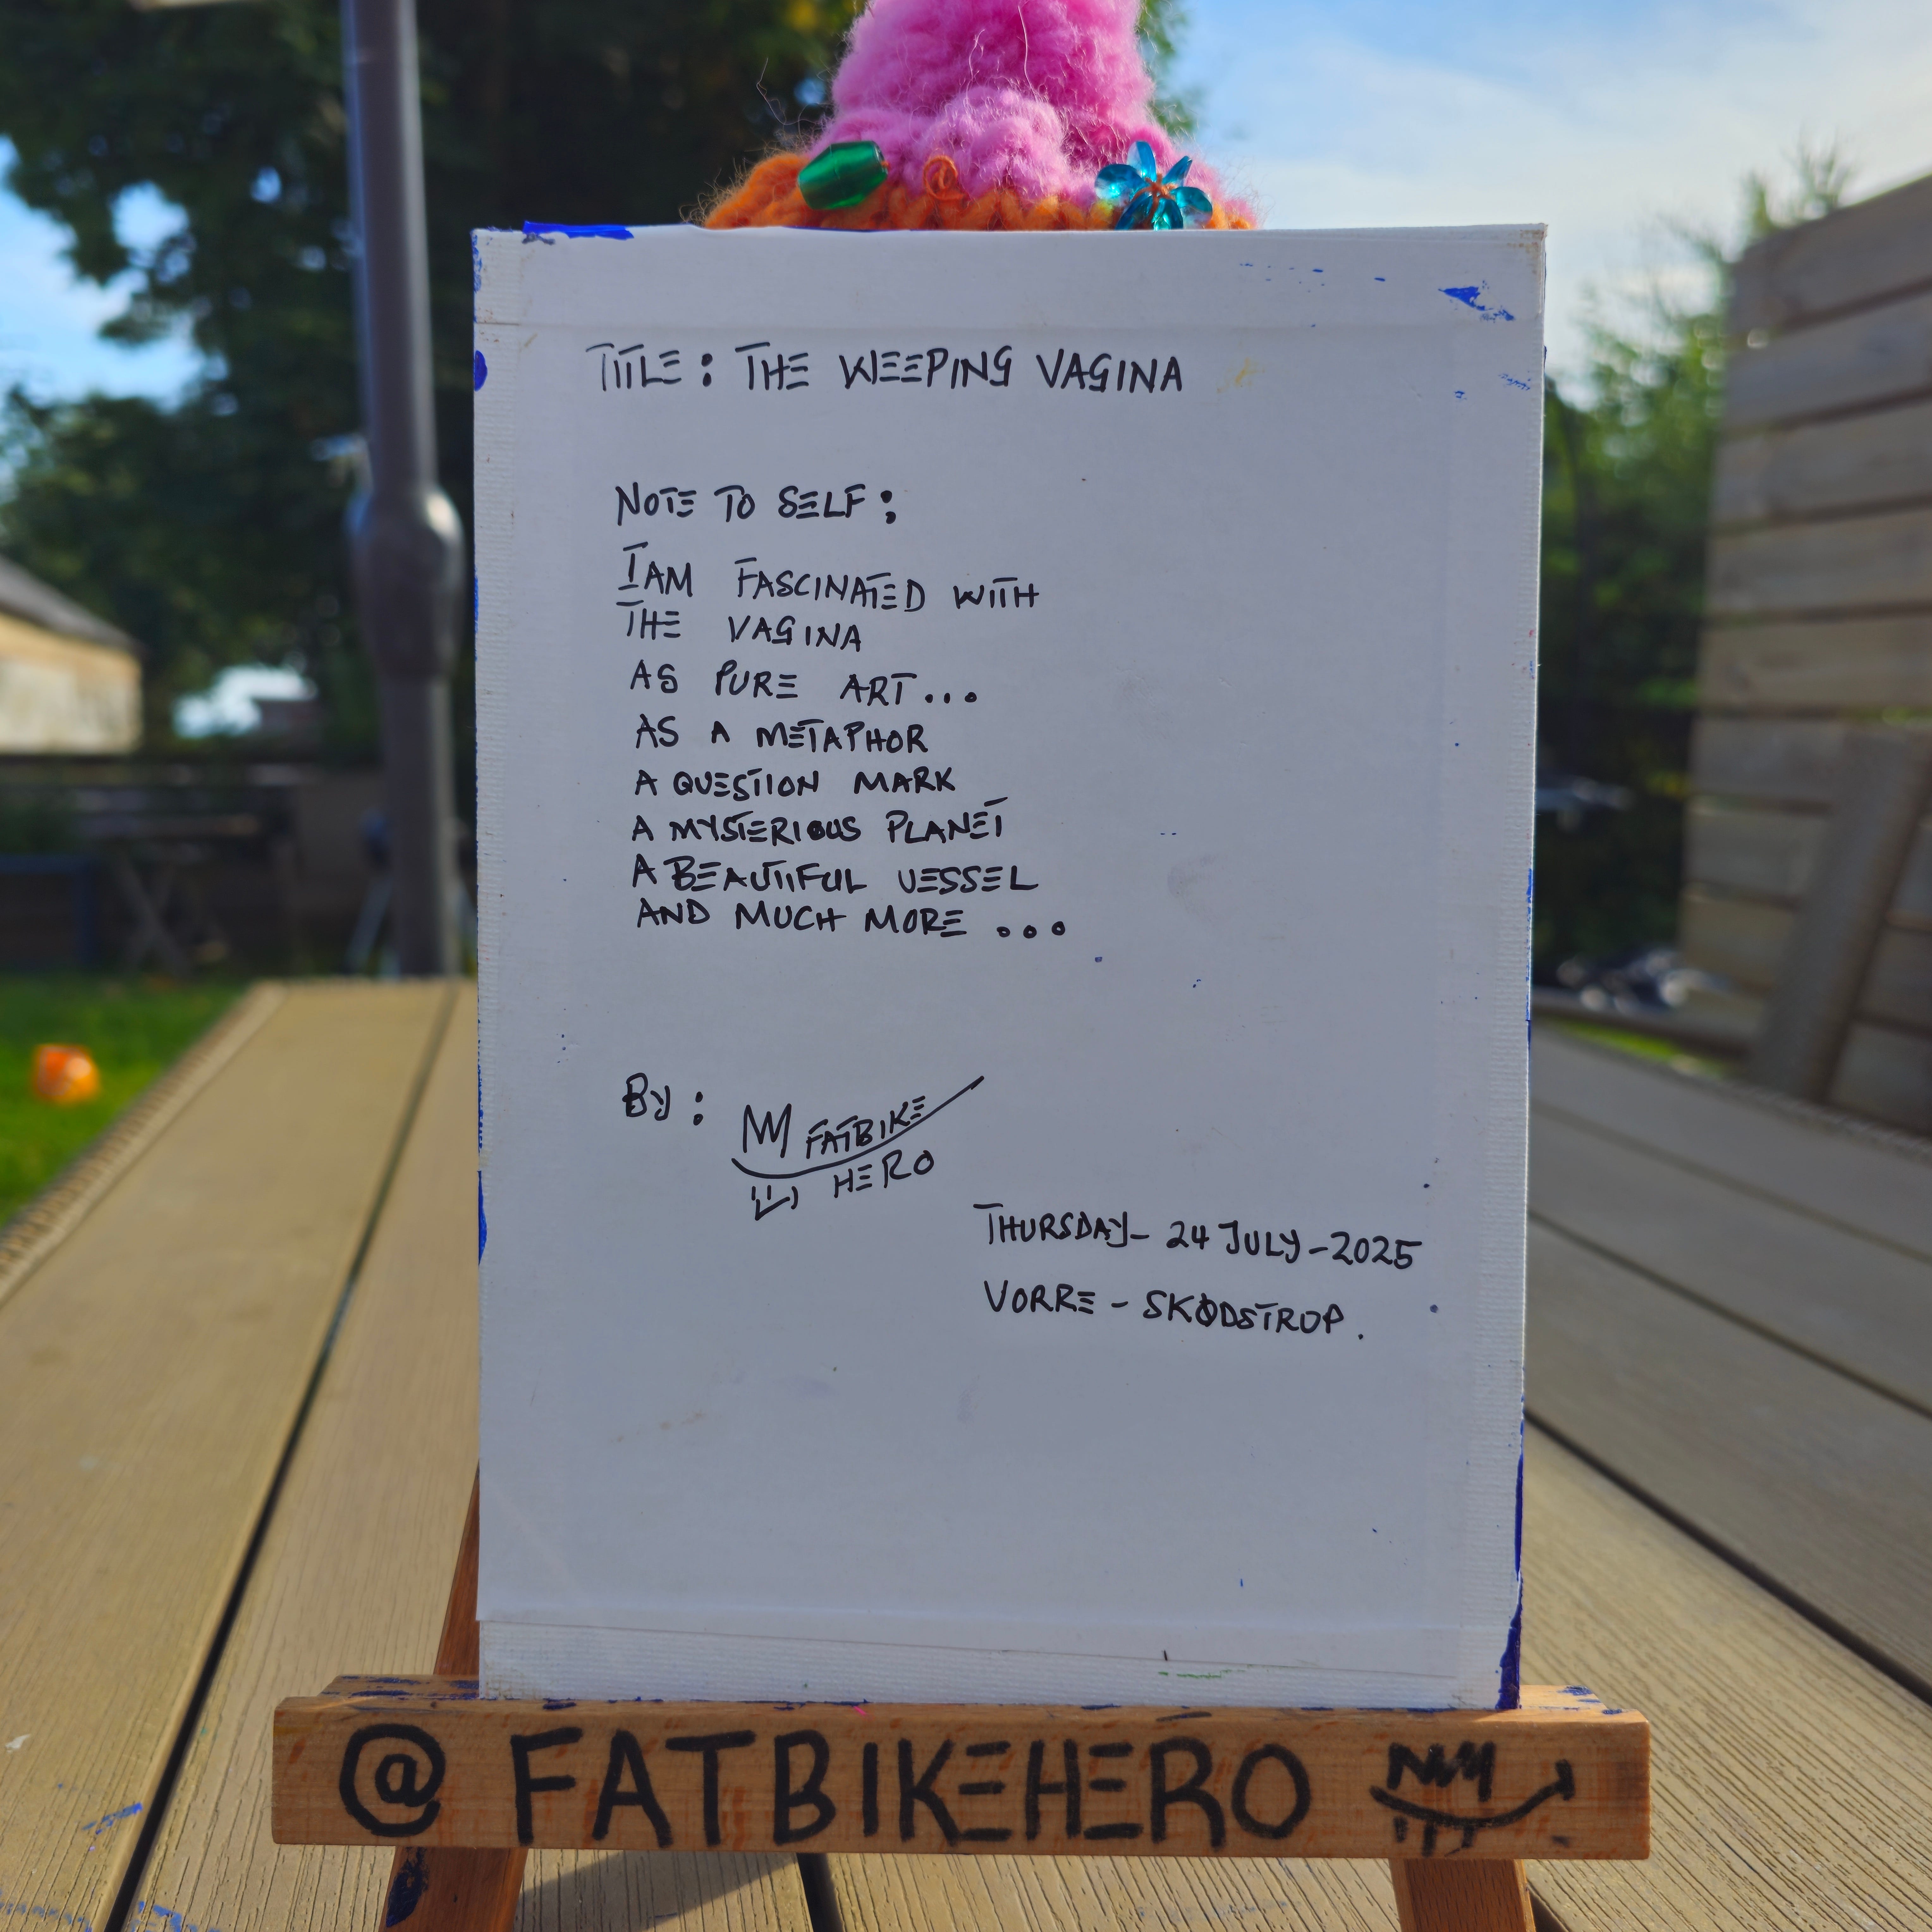 TITLE: THE WEEPING VAGINA
NOTE TO SELF:
I AM FASCINATED WITH
THE VAGINA
AS PURE ART...
AS A METAPHOR
A QUESTION MARK
A MYSTERIOUS PLANET
A BEAUTIFUL VESSEL
AND MUCH MORE ...
BY: FATBIKE
HERO
THURSDAY - 24 JULY - 2025
VORRE - SKØDSTROP.
@FATBIKEHERO